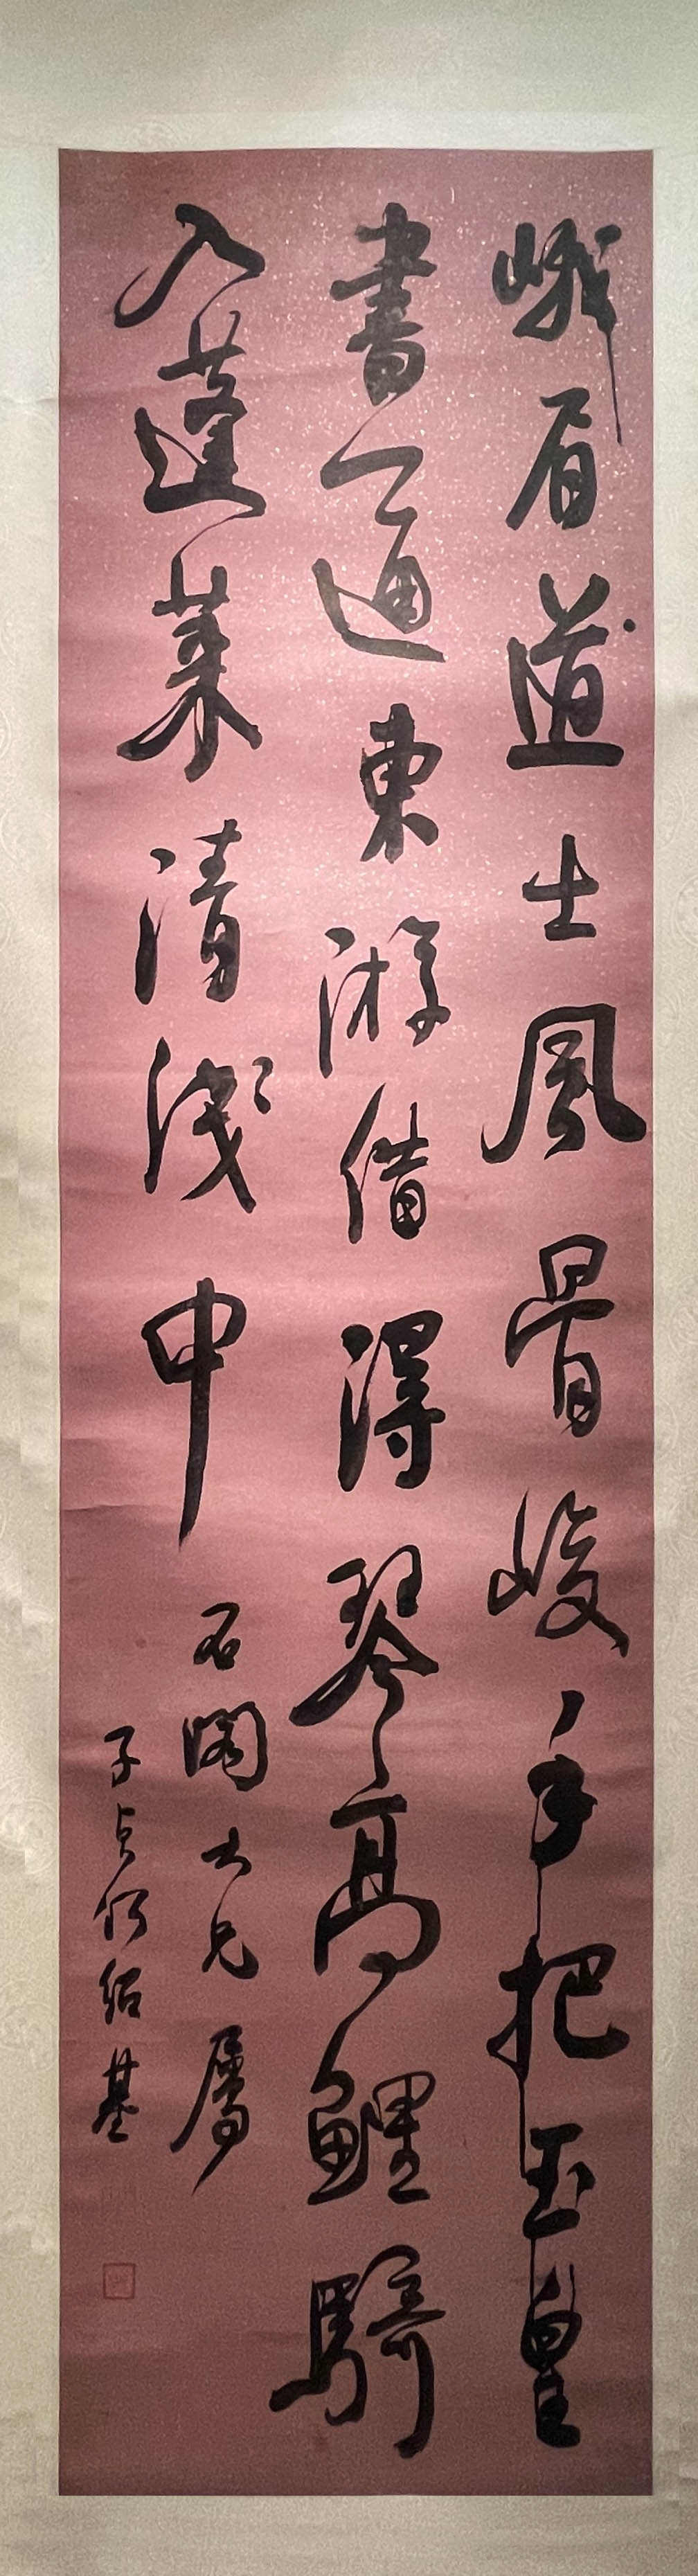 峨眉道士風骨峻手把玉皇
書一通東游借得琴高鯉騎
入蓬萊清淺中
石閣大兄屬
子貞何紹基